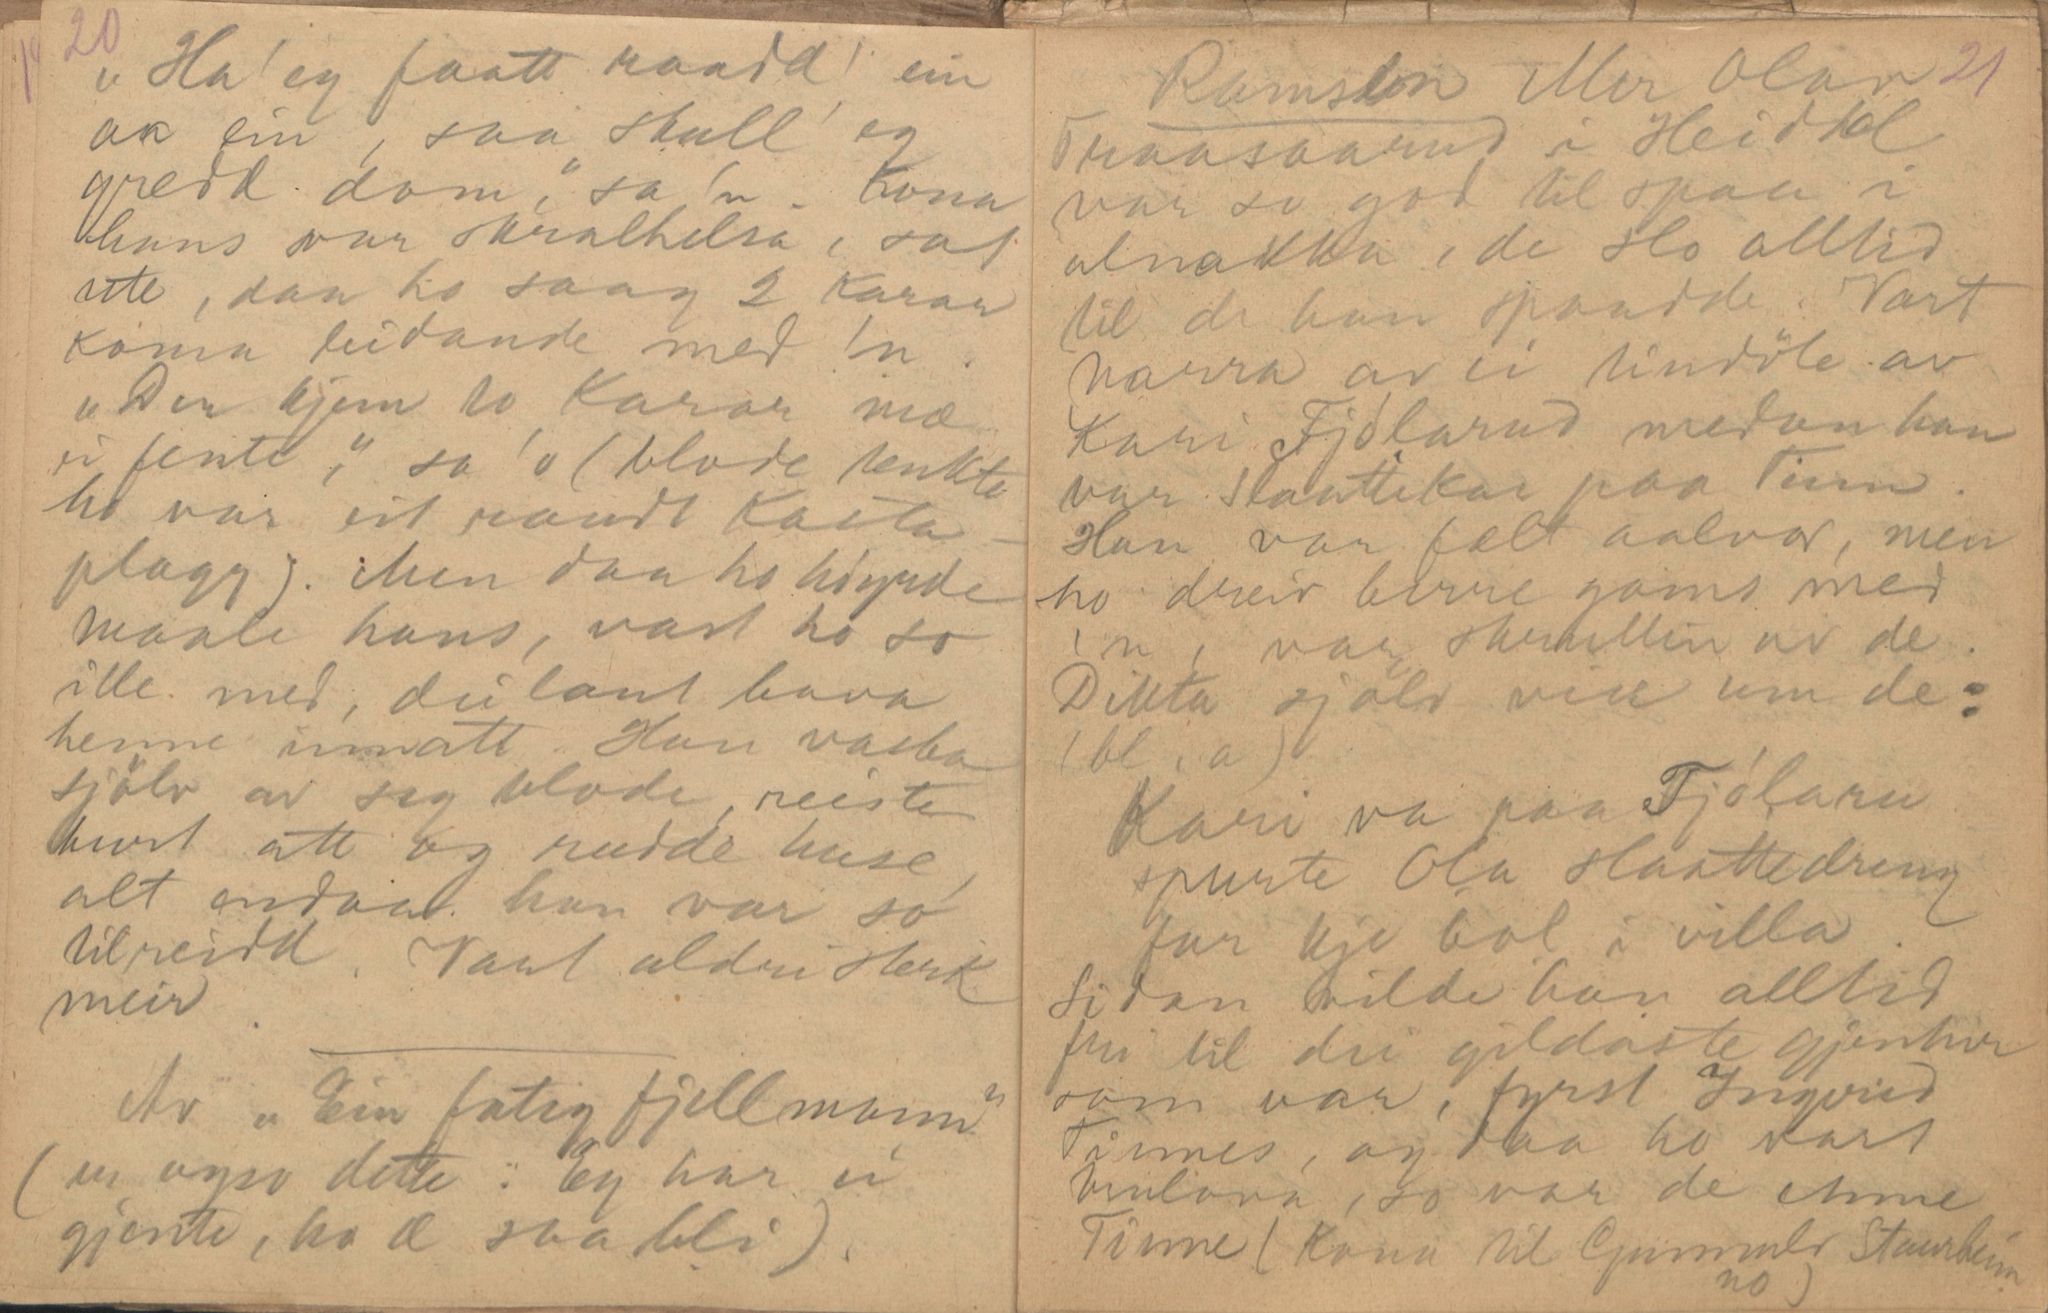 20
"Ha' eg faatt raadd' ein
ak ein, saa skull' eg
gredd dom," sa 'n. Kona
hans var skralhelsa, sat
ute, daa ho saag 2 karar
koma leidande med 'n.
"Der kjem to karar mæ
ei jente," sa 'o (blode tenkte
ho var eit raudt kasta-
plagg). Men daa ho höyrde
maale hans, vart ho so
ille med, dei laut bera
henne innatt. Han vaska
sjölv av seg blode, reiste
burt att og rudde huse,
alt endaa han var so
tilreidd. Vart aldri sterk
meir.
Av "Ein fatig fjellmann"
(er ogso dette: Eg har ei
gjente, ho æ saa bli).
21
Ramslon Mer Olav
Traasaarud i Heiddal
var so god til spaa i
alnakka, de slo alltid
til de han spaadde. Vart
narra av ei tindöle av
Kari Fjölarud medan han
var slaattekar paa Tinn.
Han var fælt aalvor, men
ho dreiv berre gams med
'n, var skrullin av de.
Dikta sjölv vise um de:
(bl. a)
Kari va paa Fjölaru
spurte Ola slaattedreng
far kje bol i villa.
Sidan vilde han alltid
fri til dei gildaste gjentur
som var, fyrst Ingvild
Tinnes, og daa ho vart
trulova, so var de Anne
Tinne (kona til Gunnulv Staurheim
no)